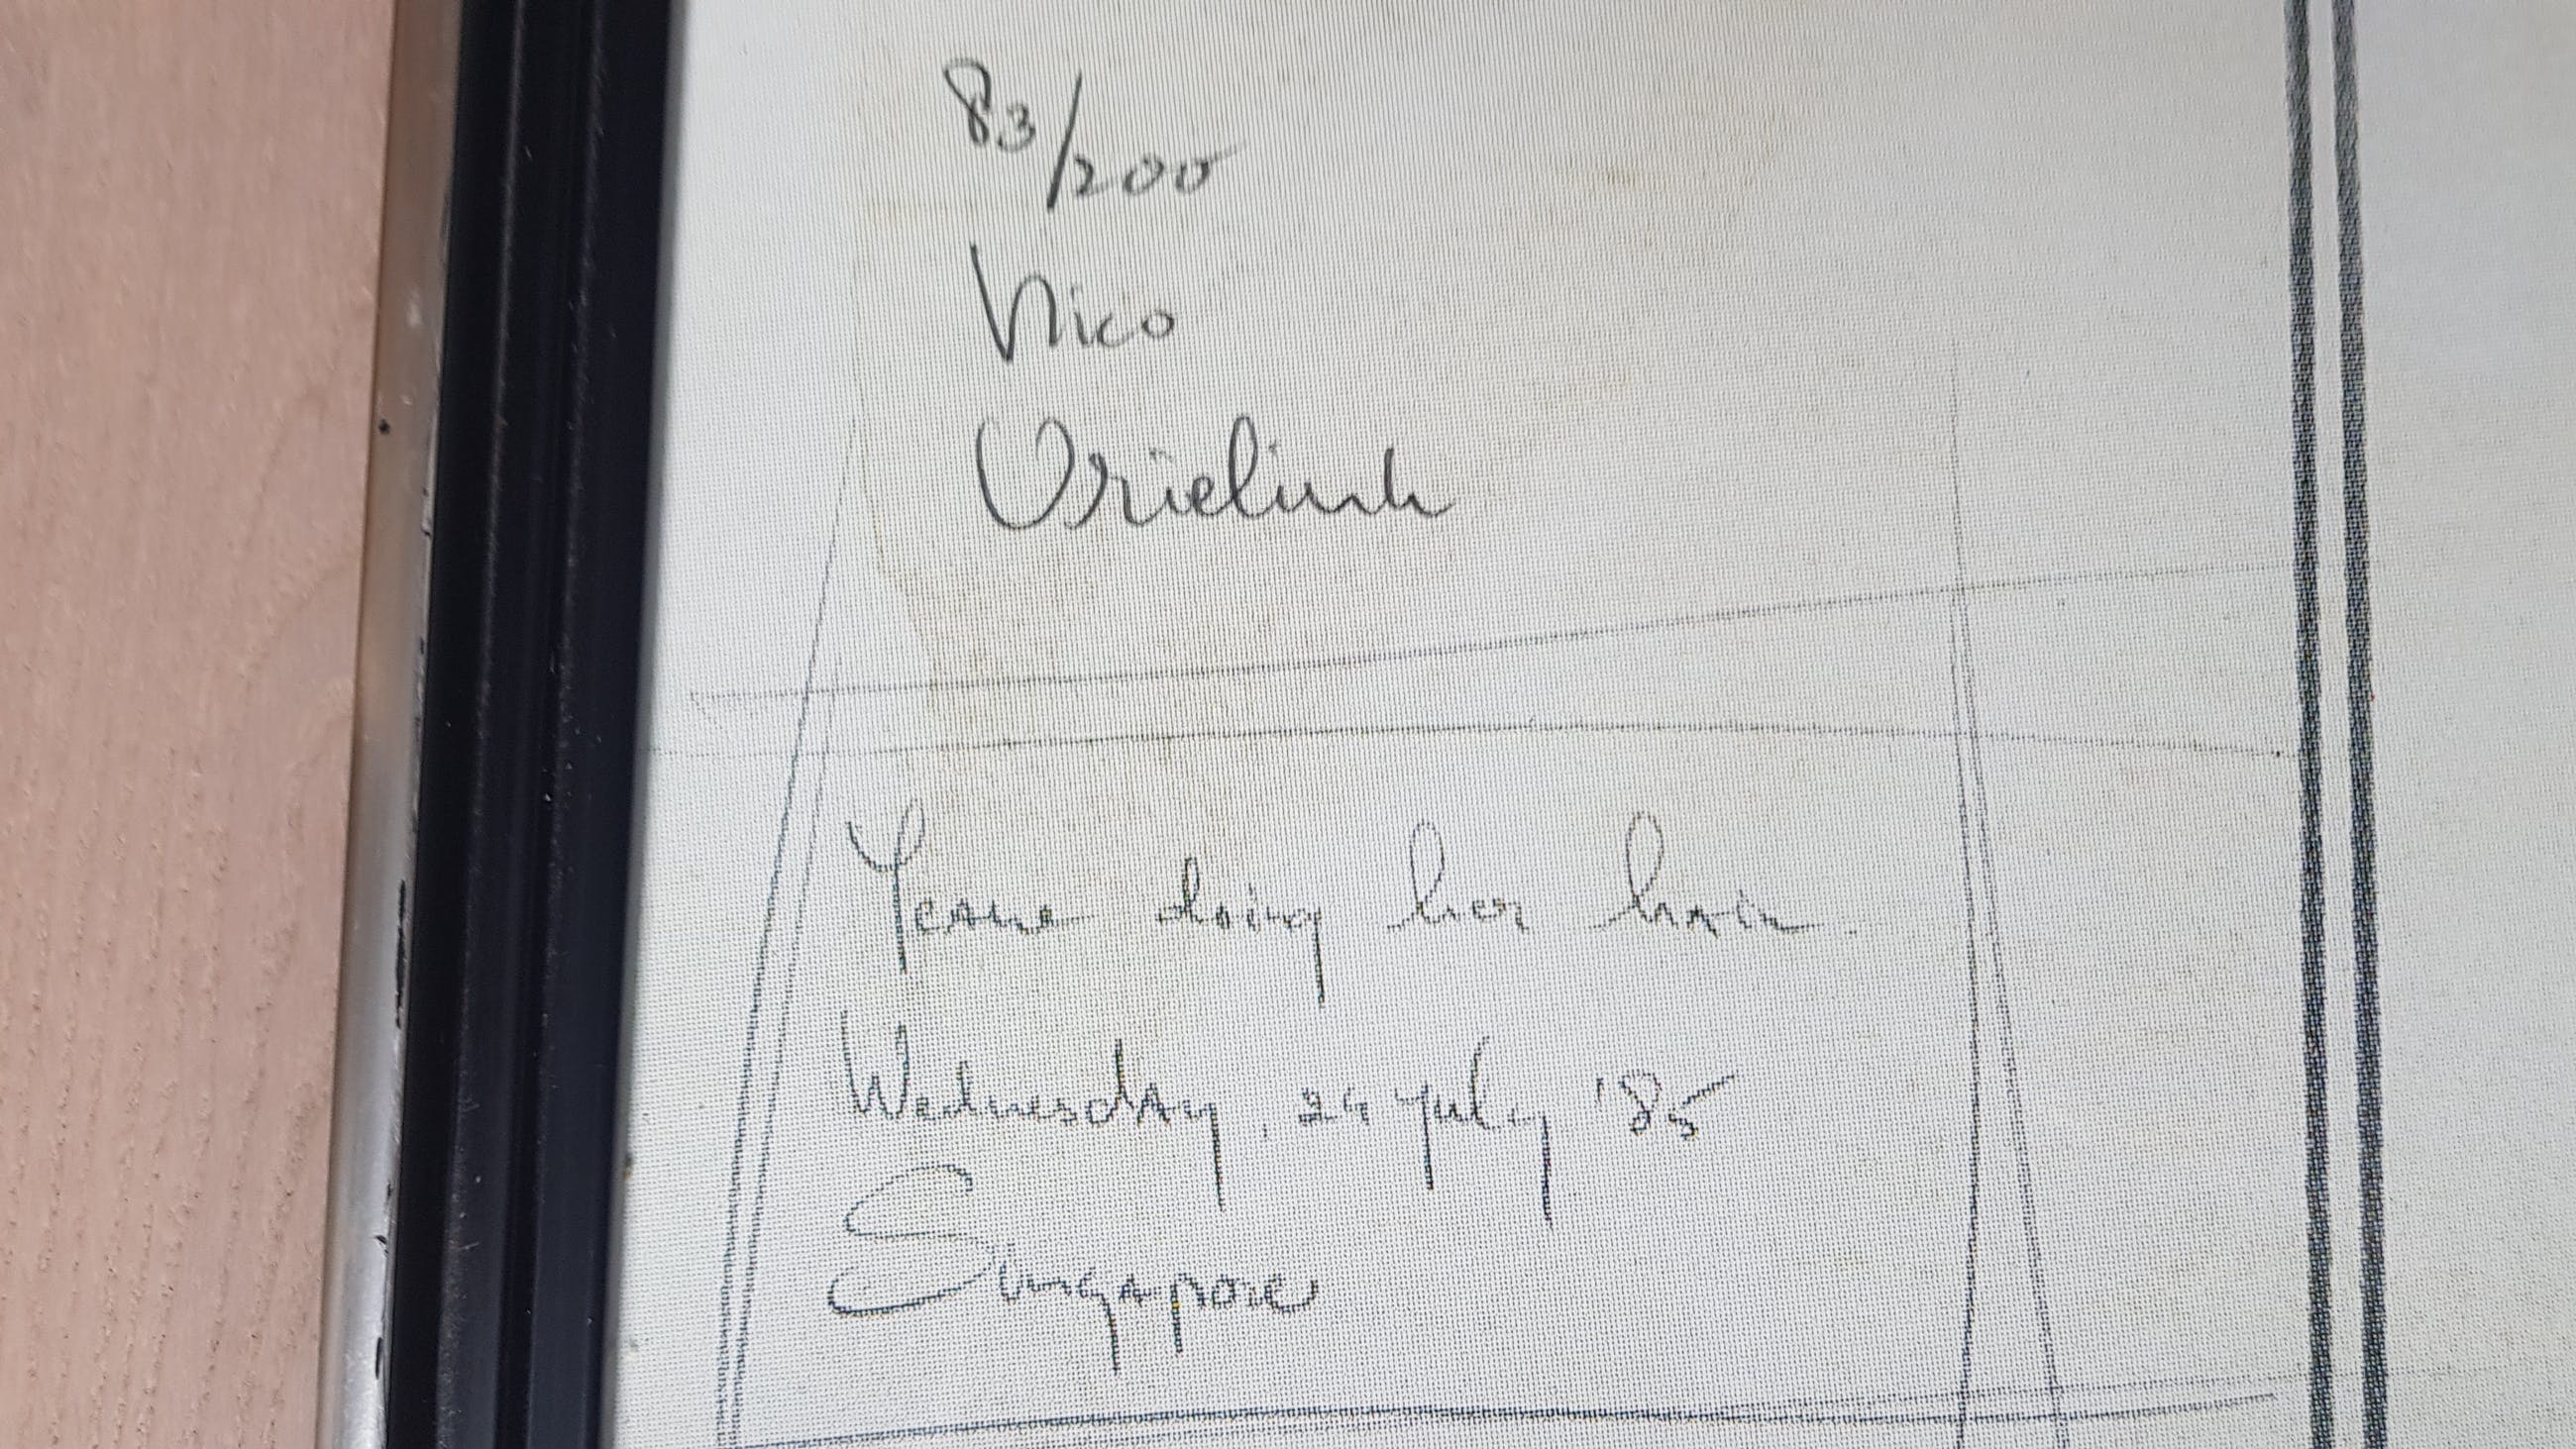 83/200
Nico
Vrielink
doing her hair.
Wednesday, 24 July '85
Singapore